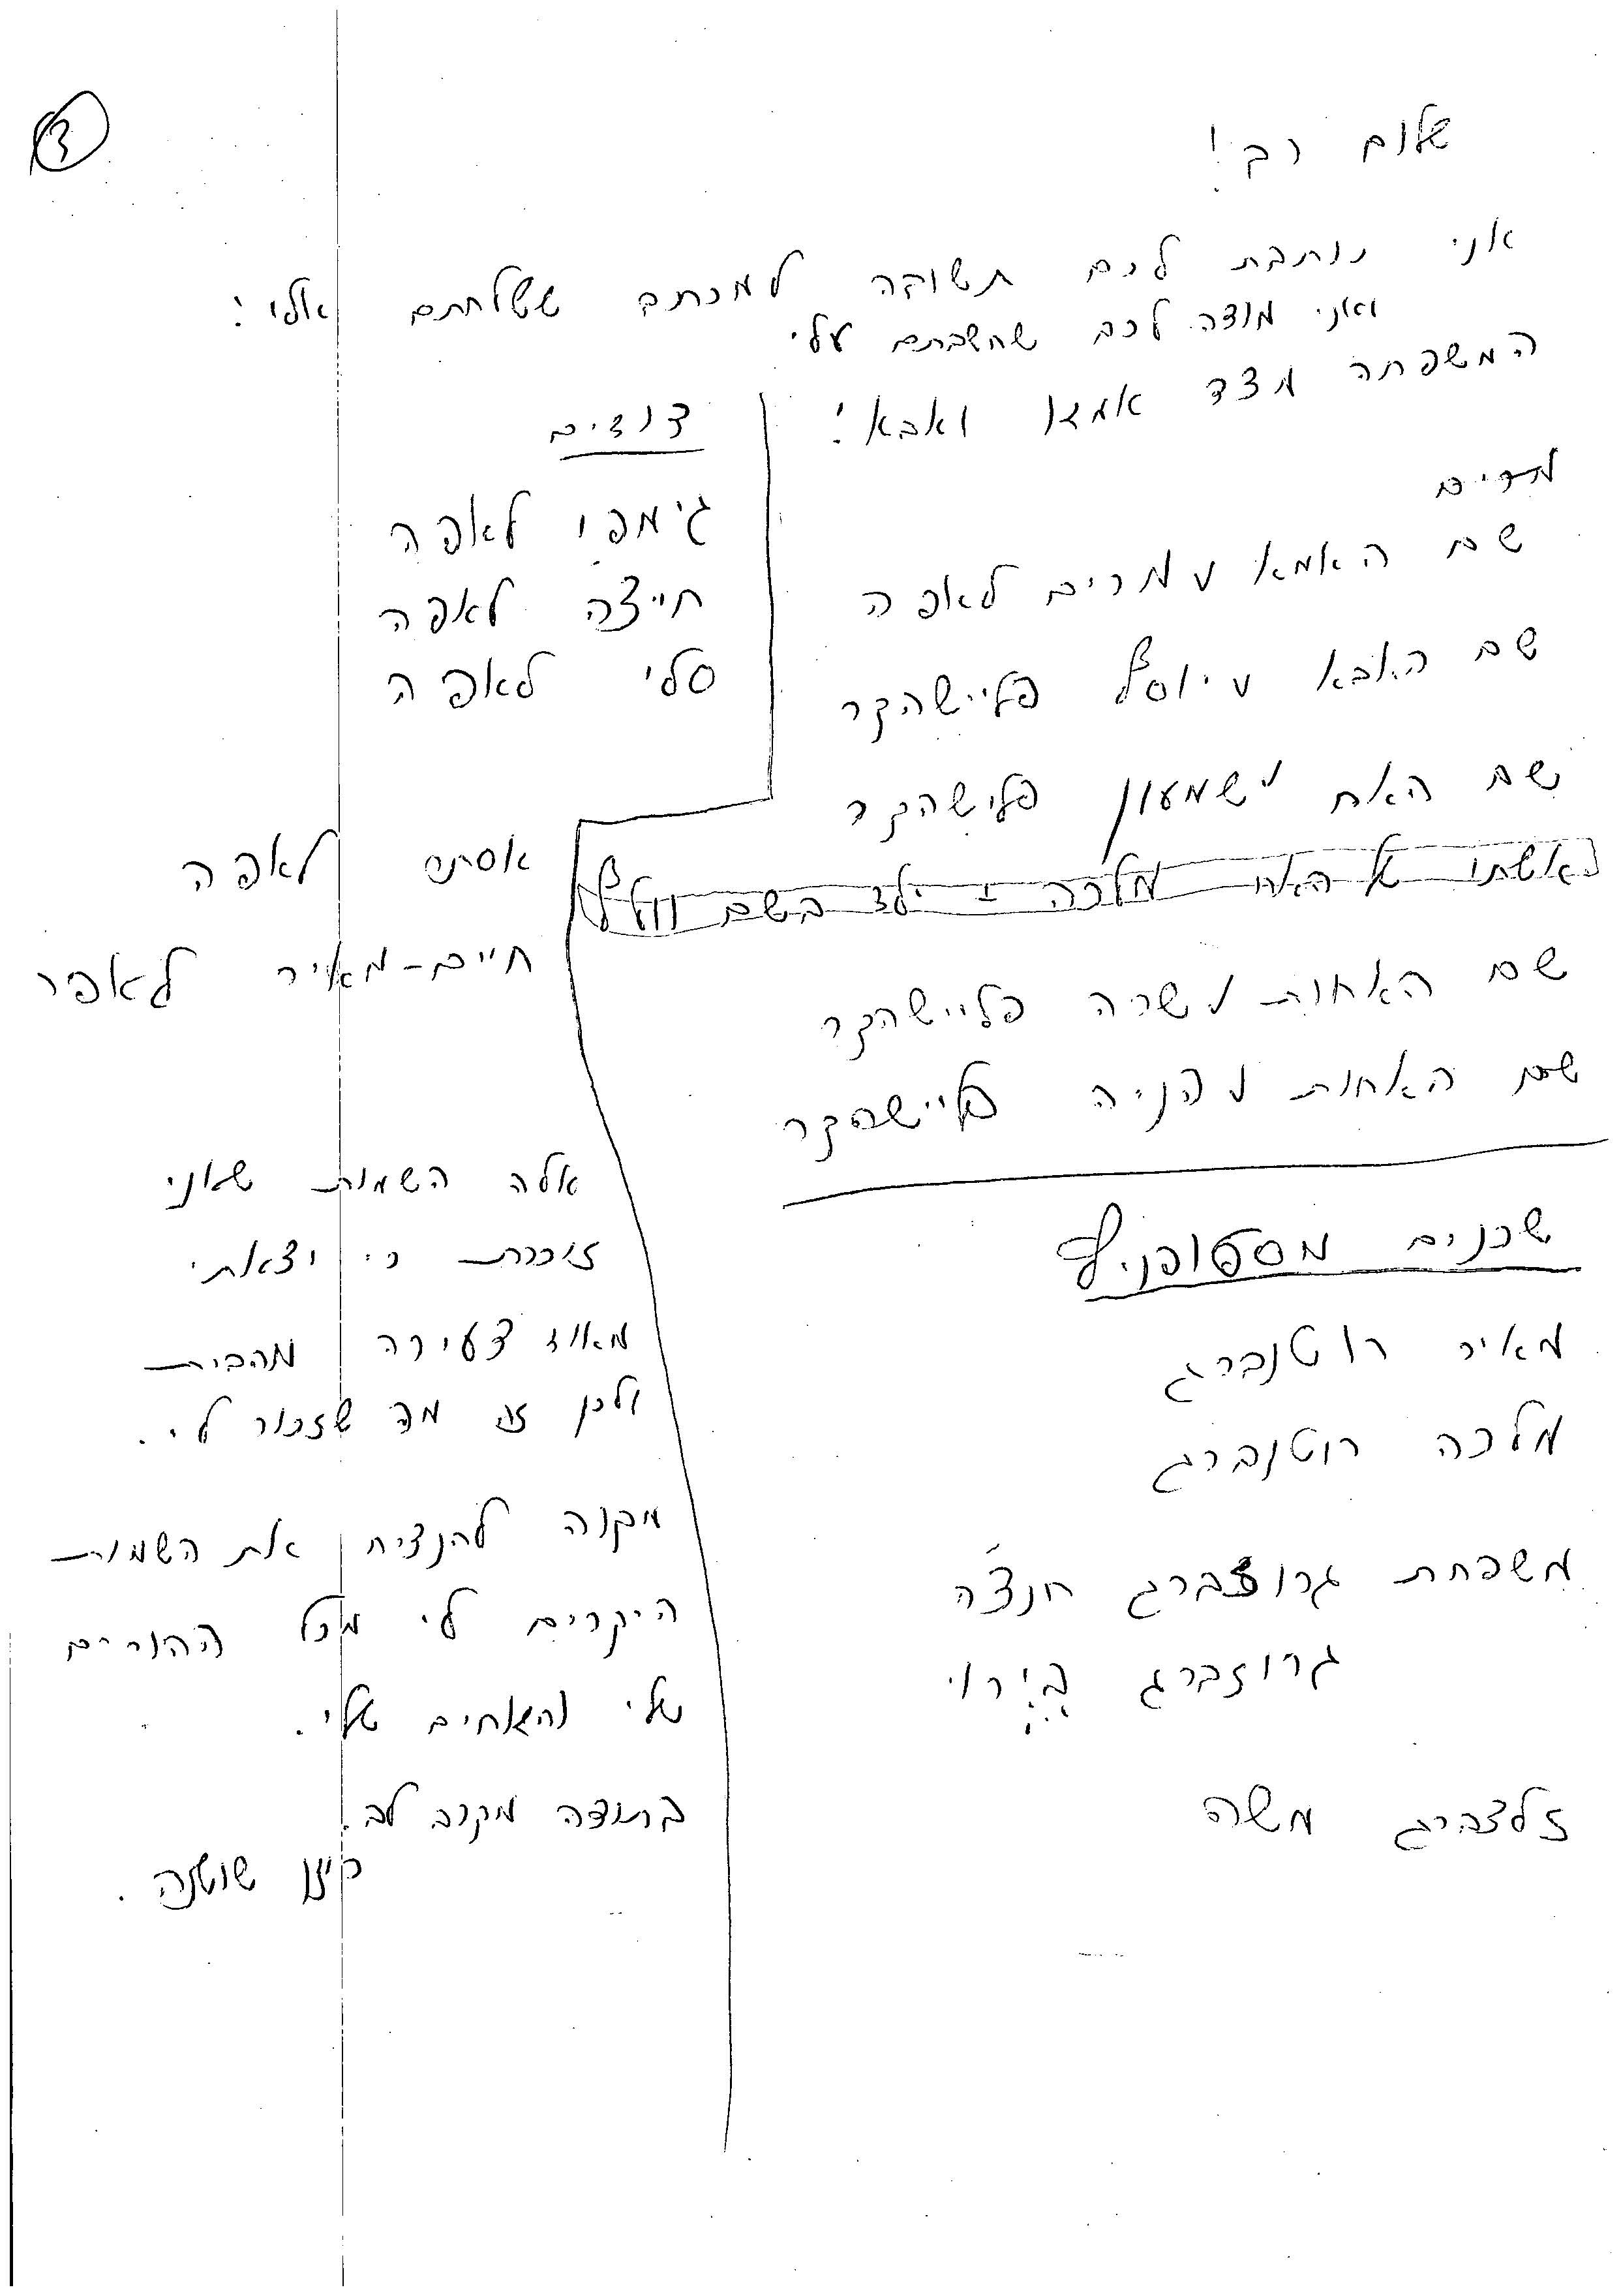 3
שלום רב!
אני כותבת לכם תשובה למכתב ששלחתם אלי:
ואני מודה לכם שחשבתם עלי
המשפחה מצד אמא ואבא:
מתים
שם האמא מרים לאפה
שם האבא יוסף פליישהקר
שם האח שמעון פלישהקר
אשתו של האח מלכה + ילד בשם וולף
שם האחות שרה פליישהקר
שם האחות הניה פליישהקר
שכנים מסטופניץ
מאיר רוטנברג
מלכה רוטנברג
משפחת גרוזברג חנצ'ה
גרוזברג
זלצברג משה
דודים
גימפו לאפה
חייצה לאפה
סלי לאפה
אסתר לאפה
חיים-מאיר לאפה
אלה השמות שאני
זוכרת כי יצאתי
מאוד צעירה מהבית
ולכן זה מה שזכור לי.
מקווה להנציח את השמות
היקרים לי מכל ההורים
שלי והאחים שלי.
בתודה מקרב לב.
שושנה.